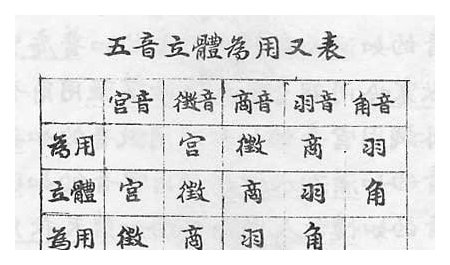 五音立體為用又表
宮音 徵音 商音 羽音 角音
為用 宮 徵 商 羽
立體 宮 徵 商 羽 角
為用 徵 商 羽 角